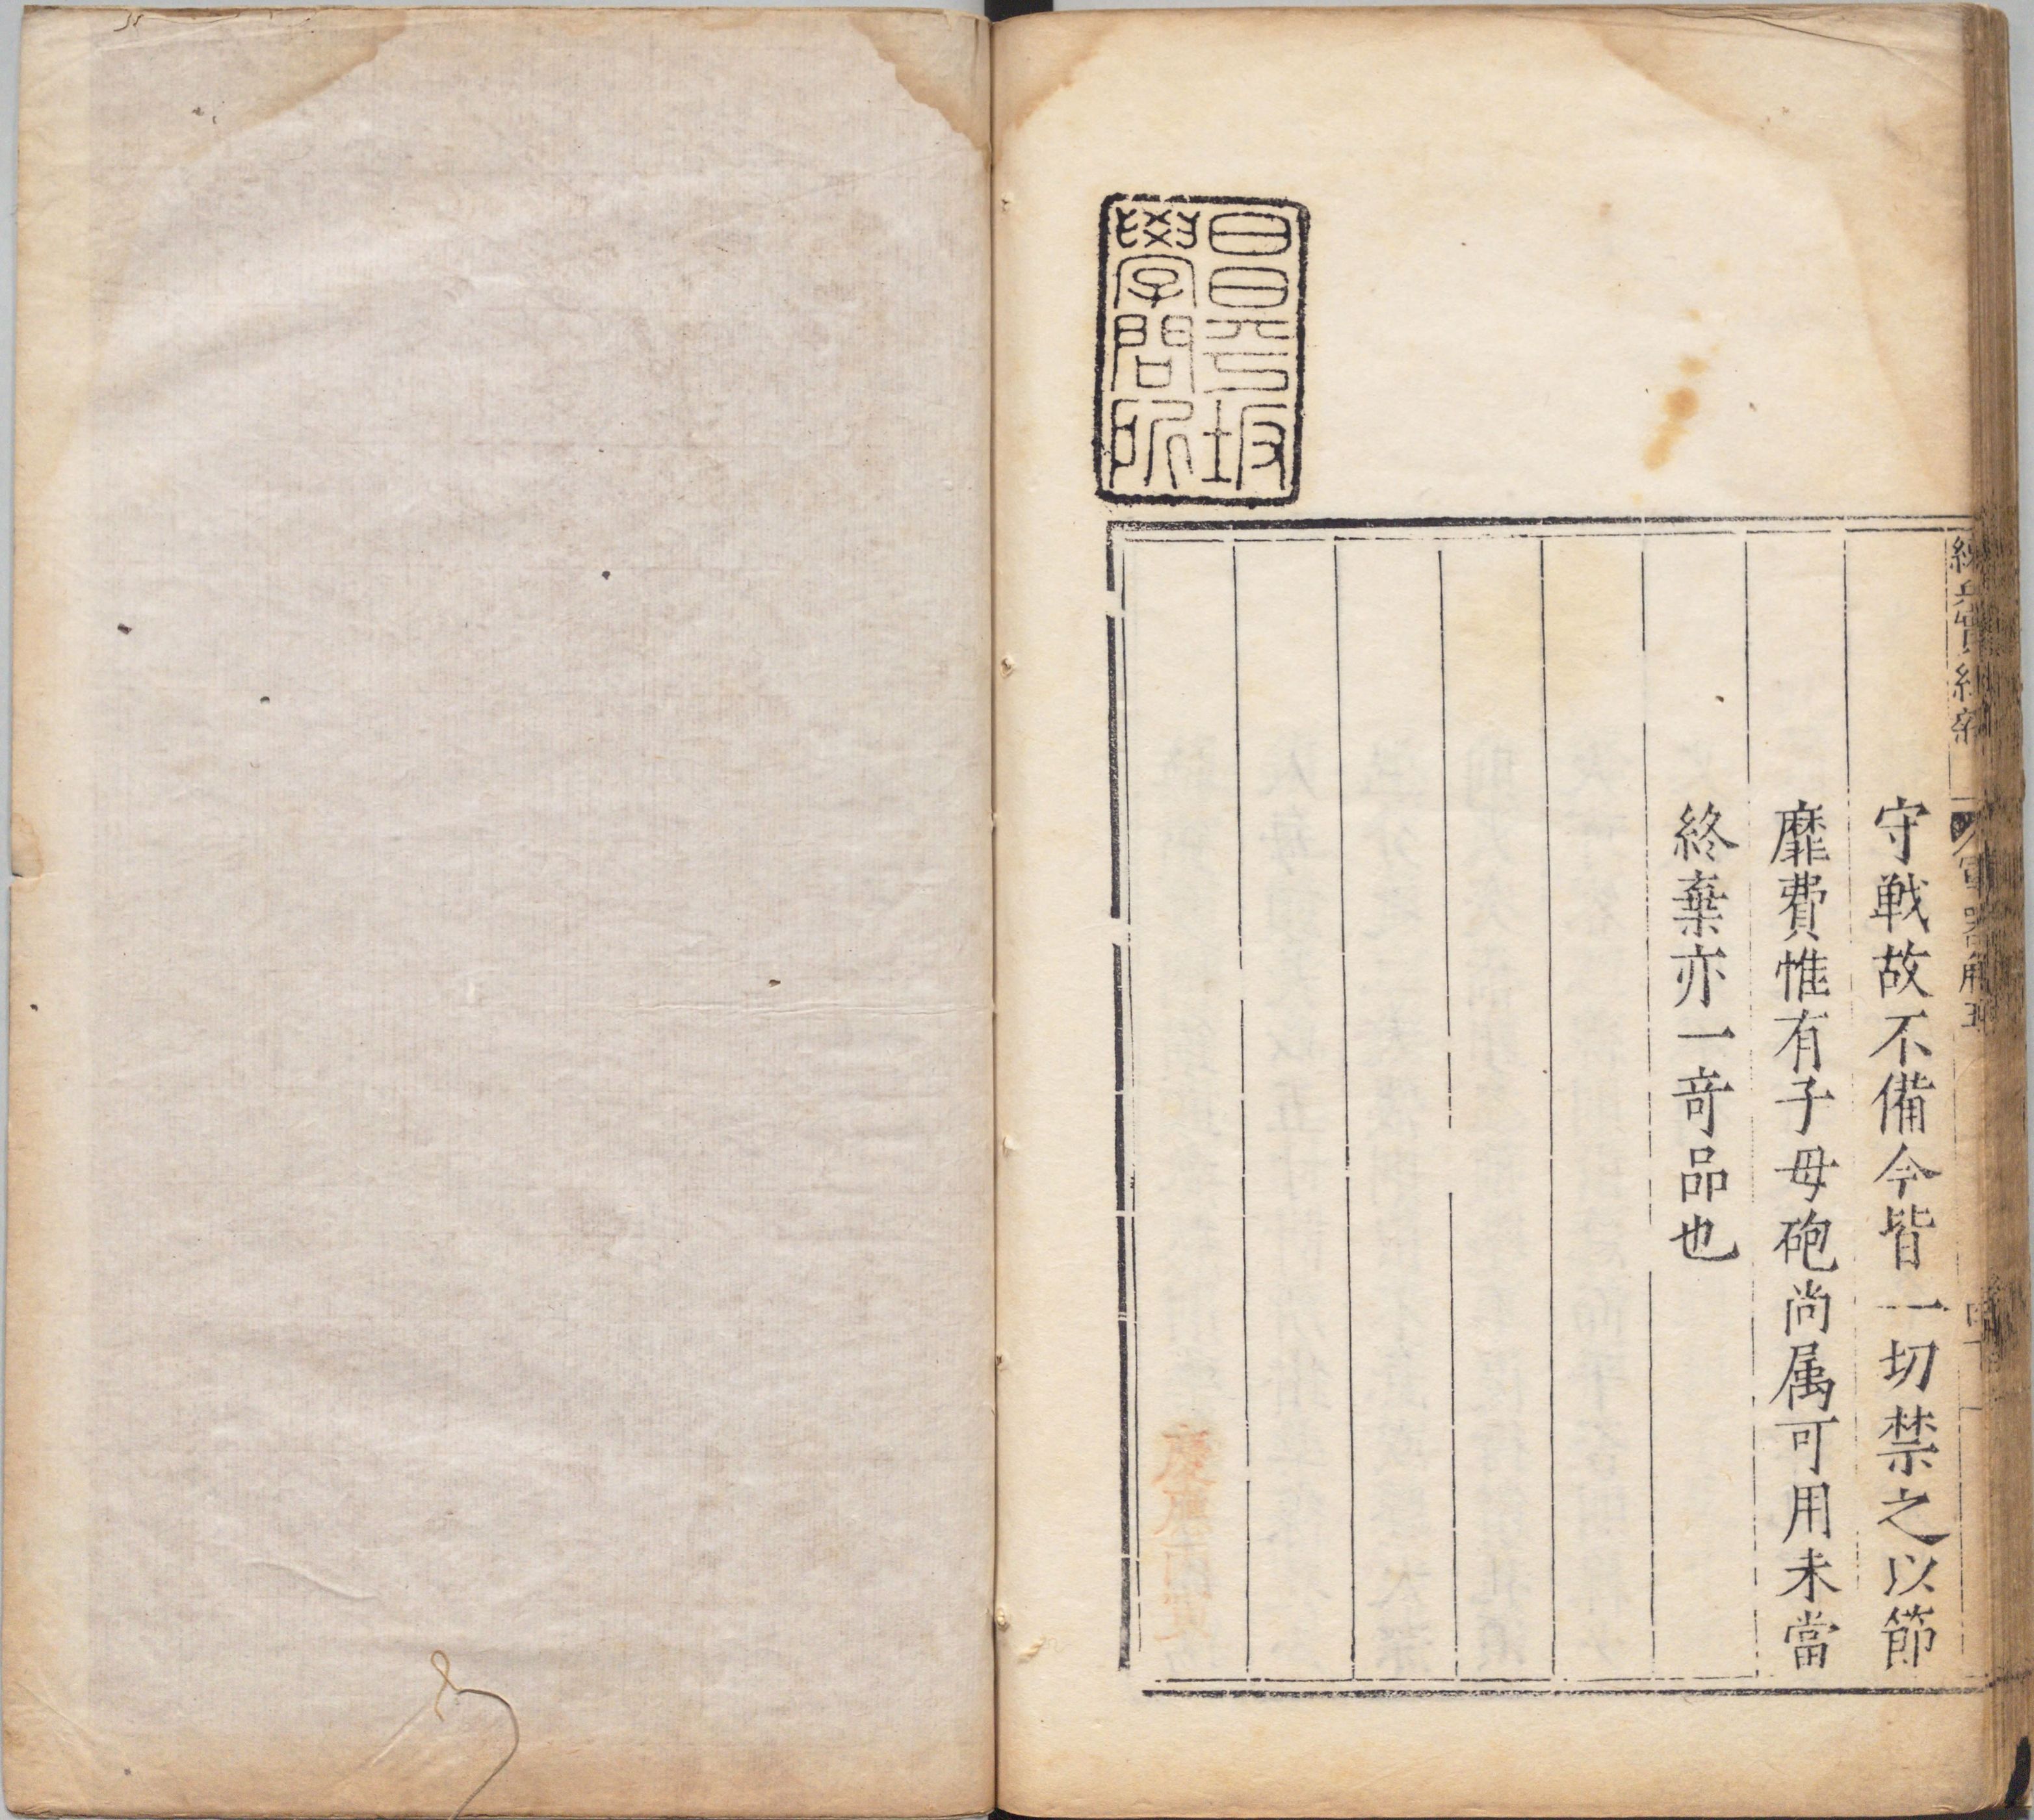 守戦故不備今皆一切禁之以節
靡費惟有子母砲尚属可用未當
終棄亦一竒品也
昌平坂
學問所